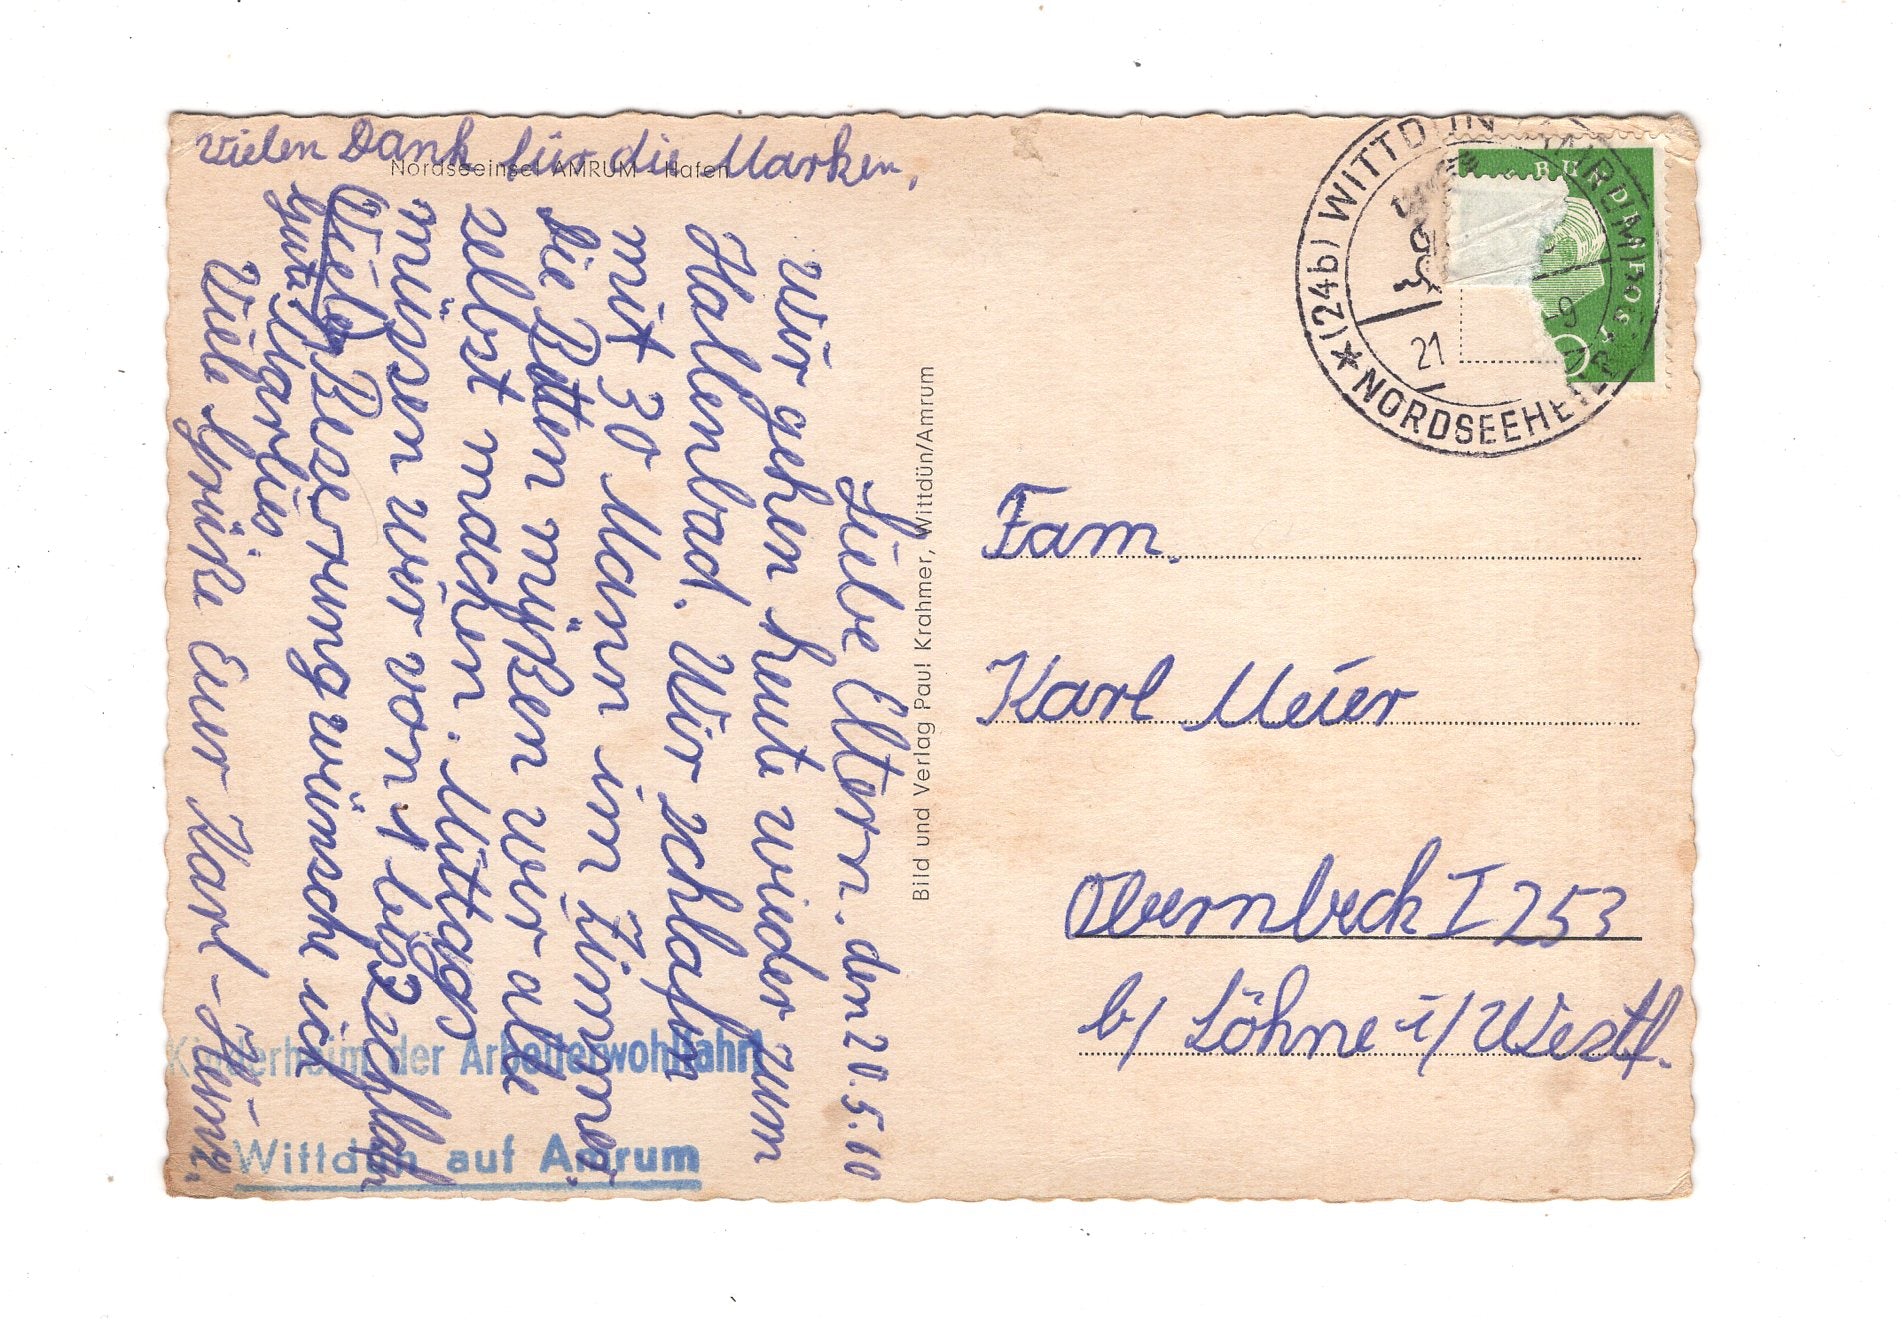 Vielen Dank für die Marken,
Nordseeinsel AMRUM - Hafen
Liebe Eltern. den 20.5.60
Wir gehen heute wieder zum
Hallenbad. Wir schlafen
mit 30 Mann im Zimmer.
die Betten müßen wir alle
selbst machen. Mittags
müssen wir von 1 bis 2 schlafen
Viele Besserung wünsche ich
Gute Marlies
Viele Grüße Euer Karl-Heinz.
Kinderheim der Arbeiterwohlfahrt
Wittdün auf Amrum
Bild und Verlag Paul Krahmer, Wittdün/Amrum
(24b) WITTDÜN
NORDSEEHEIL
21
Fam.
Karl Meier
Obernbeck I 253
b/ Löhne i/Westf.